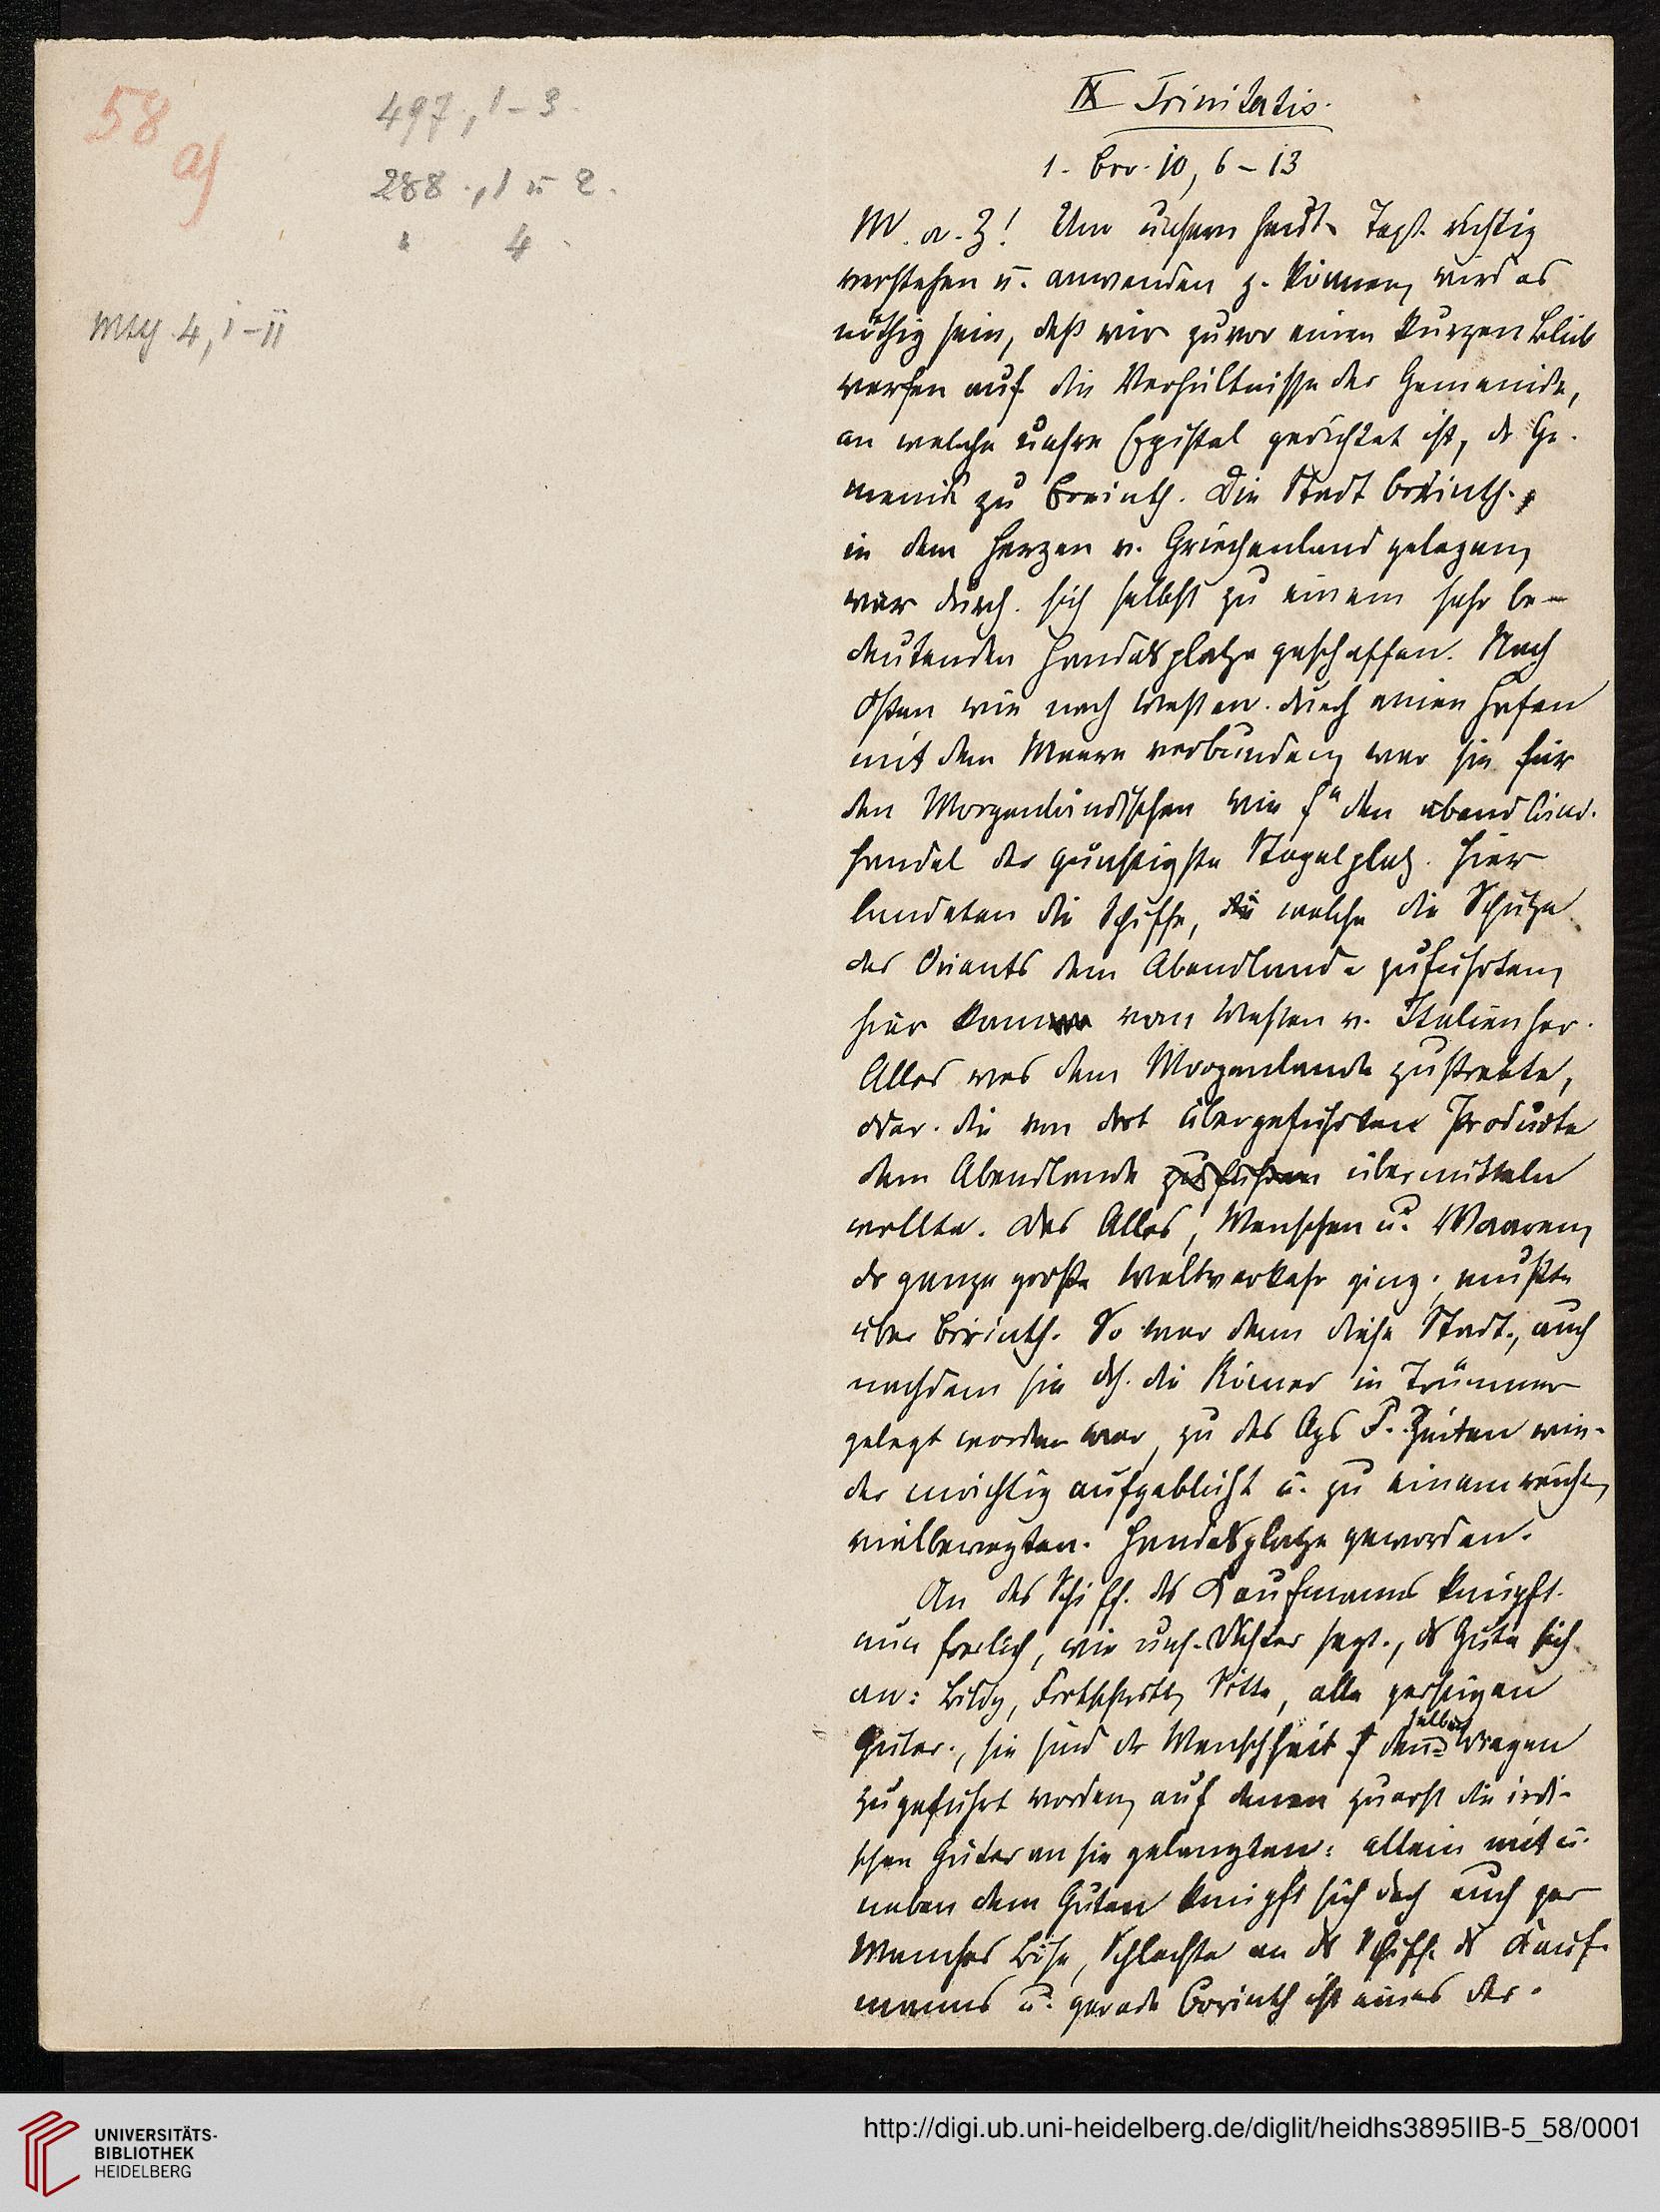 58
a)
497, 1-3.
288., 1 u 2.
" 4.
Mth 4, 1-11
IX Trinitatis.
1. Cor. 10, 6-13
M. a. Z! Um unsern heut. Text richtig
verstehen u. anwenden z. können, wird es
nöthig sein, daß wir zuvor einen kurzen Blick
werfen auf die Verhältnisse der Gemeinde,
an welche unsre Epistel gerichtet ist, der Ge-
meinde zu Corinth. Die Stadt Corinth,
in dem Herzen v. Griechenland gelegen,
war durch sich selbst zu einem sehr be-
deutenden Handelsplatze geschaffen. Nach
Osten wie nach Westen durch einen Hafen
mit dem Meere verbunden, war sie für
den Morgenländischen wie f. den abendländ.
Handel der günstigste Stapelplatz. Hier
landeten die Schiffe, die welche die Schätze
des Orients dem Abendlande zuführten,
hier kam vom Westen v. Italien her
Alles was dem Morgenlande zustrebte,
oder die von dort übergeführten Producte
dem Abendlande zuführen übermitteln
wollte. Das Alles, Menschen u. Waaren,
der ganze große Weltverkehr ging, mußte
über Corinth. So war denn diese Stadt, auch
nachdem sie dch. die Römer in Trümmer
gelegt worden war, zu des Aps P. Zeiten wie-
der mächtig aufgeblüht u. zu einem reichen,
vielbewegten Handelsplatze geworden.
An das Schiff des Kaufmanns knüpft
nun freilich, wie uns. Dichter sagt, das Gute sich
an: Bildg, Fortschritt, Sitte, alle geistigen
Güter, sie sind der Menschheit auf denselben Wegen
zugeführt worden, auf denen zuerst die irdi-
schen Güter an sie gelangten: allein mit u.
neben dem Guten knüpft sich doch auch gar
Manches Böse, Schlechte an das Schiff des Kauf-
manns u. gerade Corinth ist eines der
UNIVERSITÄTS-
BIBLIOTHEK
HEIDELBERG
http://digi.ub.uni-heidelberg.de/diglit/heidhs3895IIB-5_58/0001